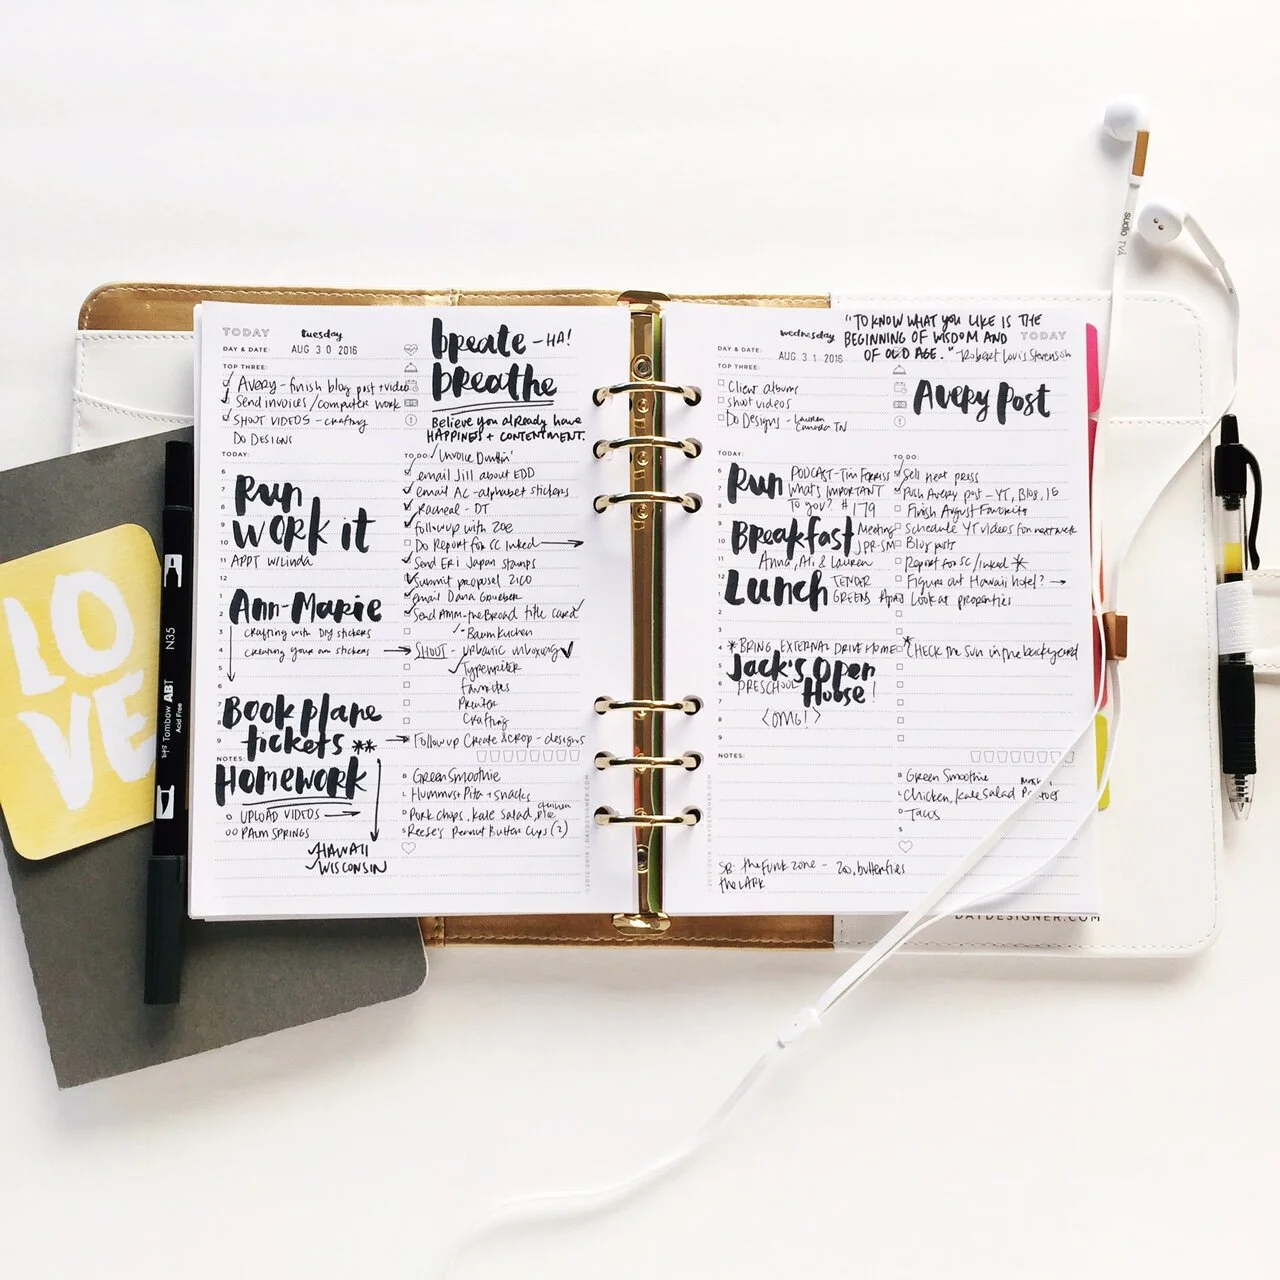 TODAY
tuesday
DAY & DATE:
AUG 30 2016
breate - HA!
breathe
Believe you already have
HAPPINESS + CONTENTMENT.
TOP THREE:
Avery - finish blog post + video
Send invoices/computer work
SHOOT VIDEOS - crafting
Do DESIGNS
TODAY:
6
7
8
9
10
11
12
1
2
3
4
5
6
7
8
9
Run
WORK it
APPT w/Linda
Ann-Marie
crafting with DIY stickers
creating your own stickers
Book plane
tickets **
TO DO:
email Jill about EDD
email AC - alphabet stickers
Racheal - DT
followup with Zoe
Do Report for SC Inked
Send Eri Japan stamps
Submit proposal
email Dana
Send Amm-the Broad title card
- Baumkuchen
SHOOT - urbanic unboxing
Typewriter
Favorites
Printer
Crafting
Followup Create & Crop - designs
NOTES:
HOMEWORK
UPLOAD VIDEOS
PALM SPRINGS
HAWAII
WISCONSIN
B Green Smoothie
L Hummus + Pita + snacks
D Pork chops, Kale Salad,
S Reese's Peanut Butter Cups (2)
wednesday
"TO KNOW WHAT YOU LIKE IS THE
BEGINNING OF WISDOM AND
OF OLD AGE." - Robert Louis Stevenson
TODAY
DAY & DATE:
AUG 31 2016
TOP THREE:
Client albums
shoot videos
Do Designs - Lauren
Canada TN
Avery Post
TODAY:
6
7
8
9
10
11
12
1
2
3
4
5
6
7
8
9
Run
PODCAST - Tim Ferriss
What's IMPORTANT
TO you? #179
Breakfast
Meeting
Anna, Ali & Lauren
Lunch
TENDER
GREENS
* BRING EXTERNAL DRIVE HOME
Jack's Open
House!
PRESCHOOL
<OMG!>
TO DO:
Sell Heat press
Push Avery post - YT, Blog, IG
Finish August Favorites
Schedule YT videos for next week
Blog posts
Report for SC/inked *
Figure out Hawaii hotel? →
Look at properties
* CHECK the Sun in the backyard
NOTES:
B Green Smoothie
L Chicken, Kale Salad
D Tacos
S
SB: the Funk Zone - Zoo, butterflies
the LARK
©2012-2016 DAYDESIGNER.COM
©2012-2016 DAYDESIGNER.COM
DAYDESIGNER.COM
LOVE
Tombow ABT
Acid Free
N35
sudio TVÅ